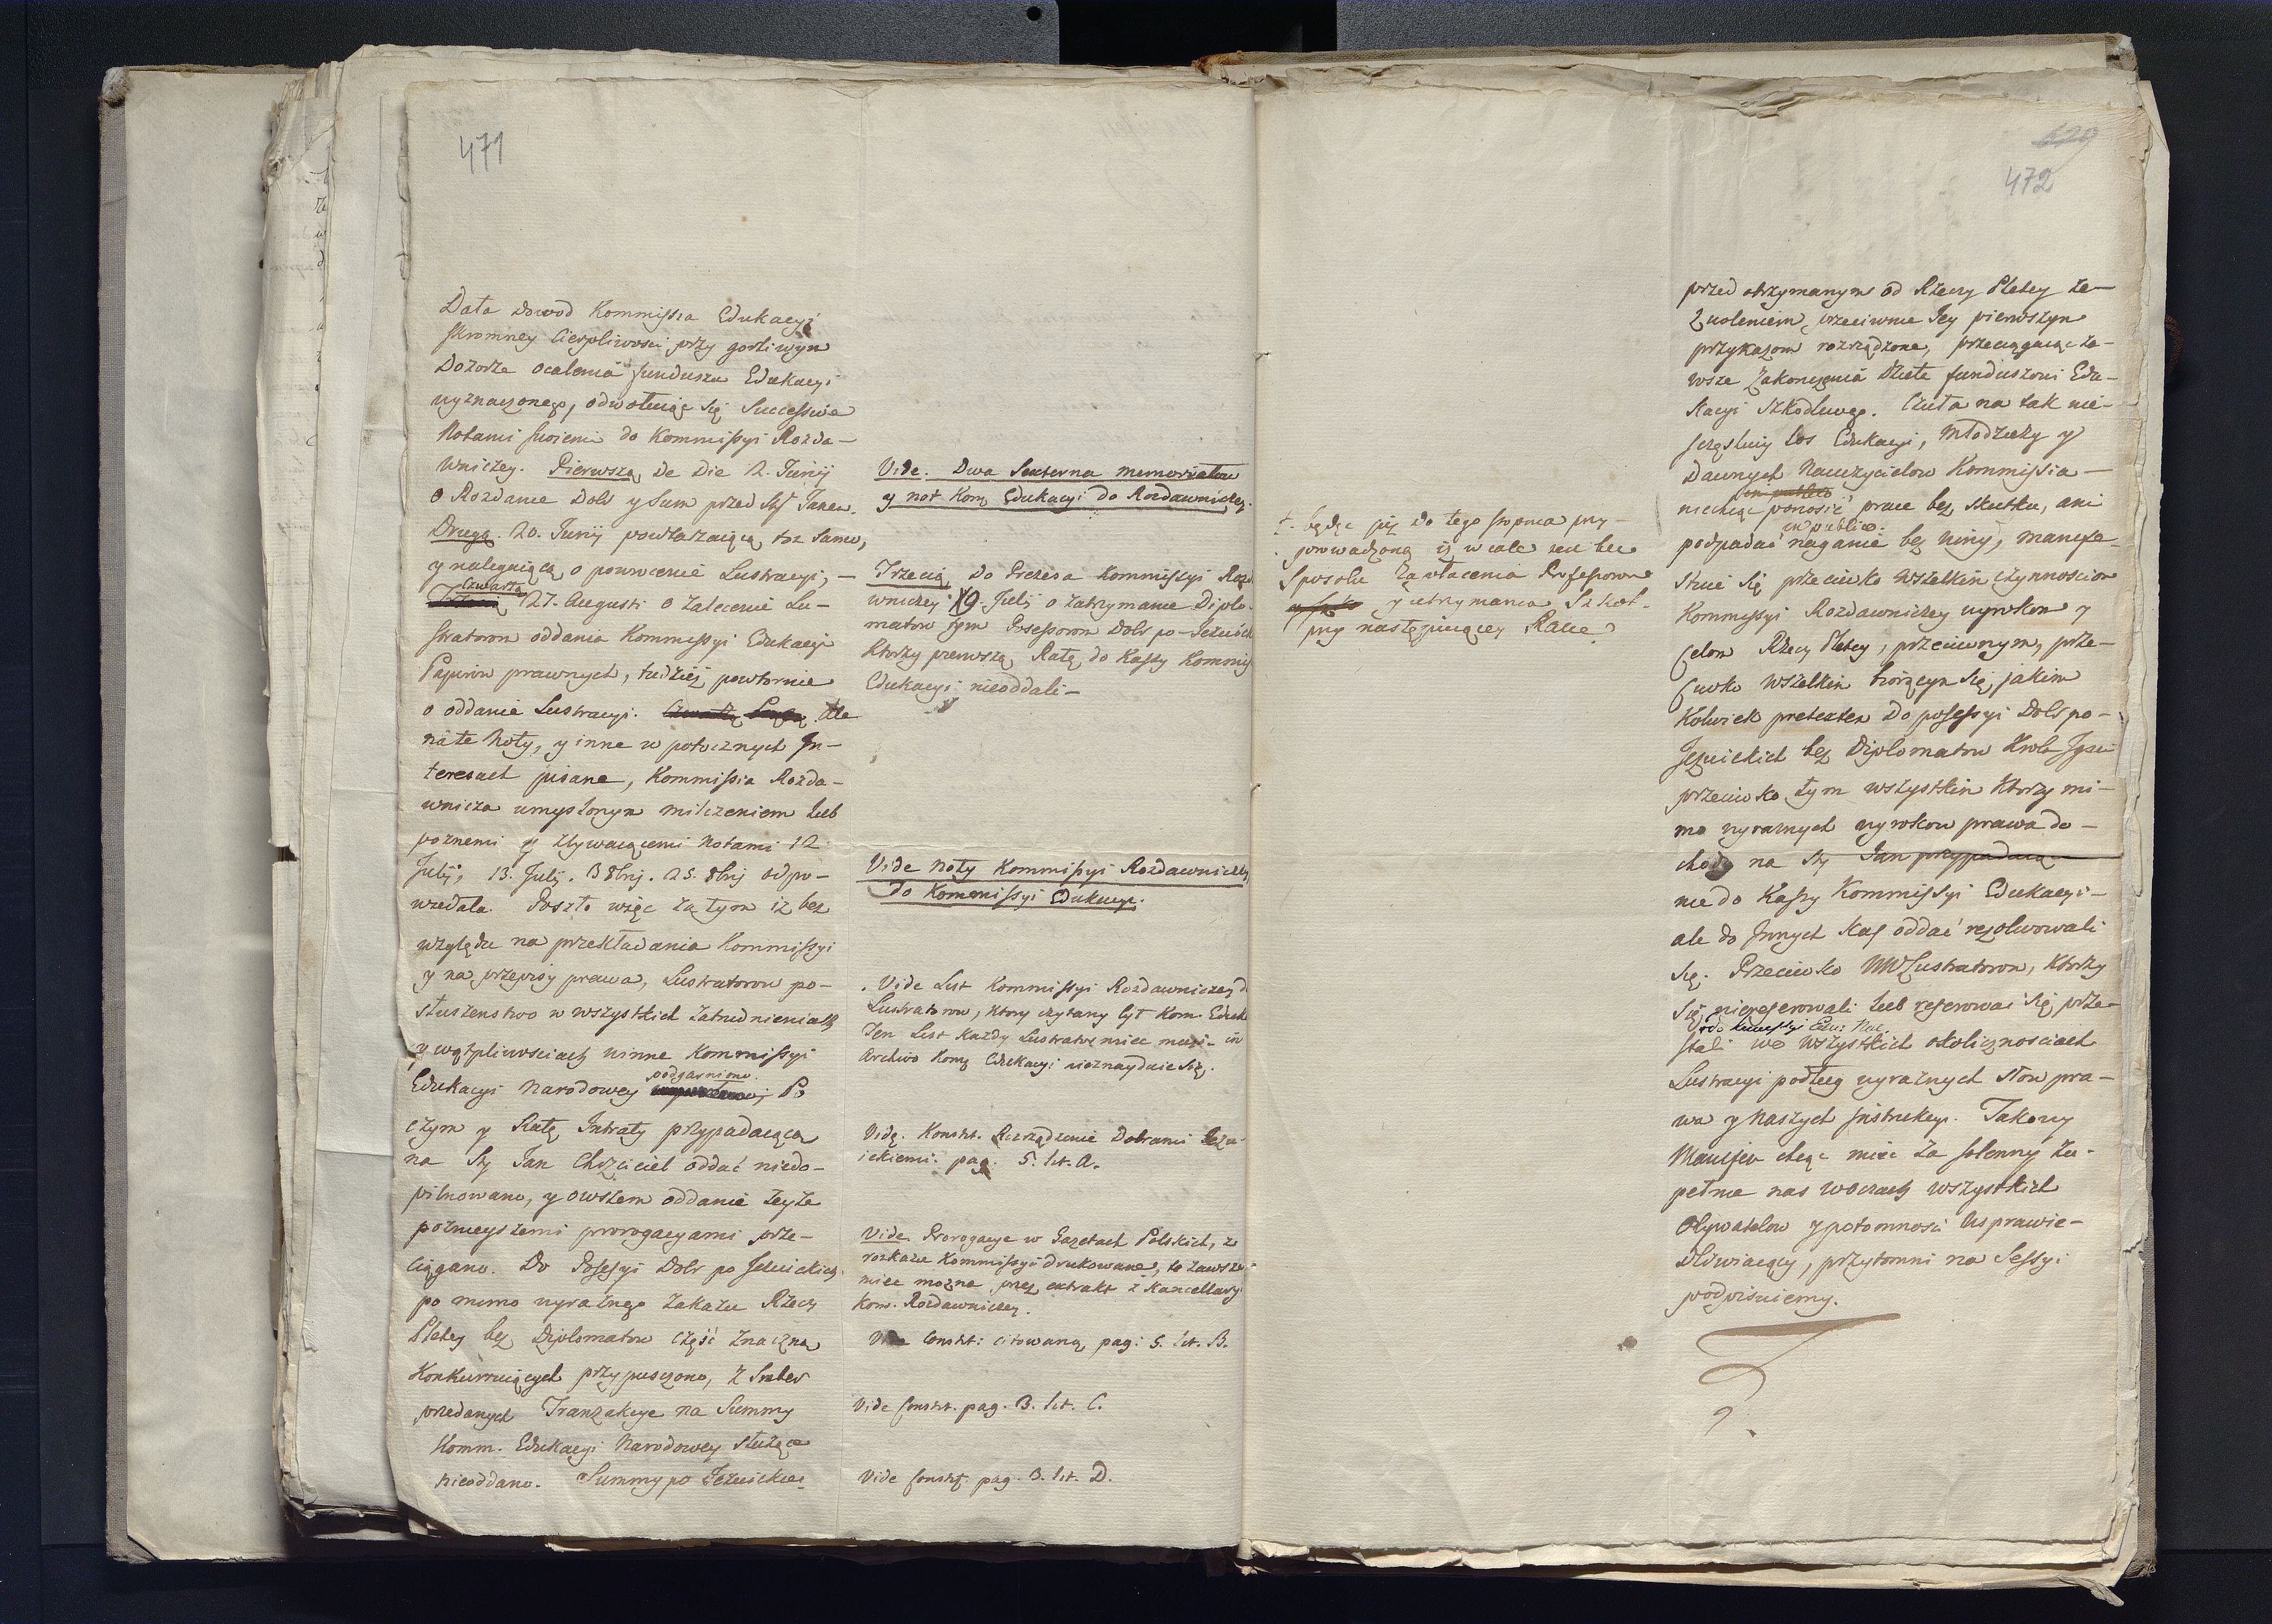 471
Data dowod Kommissia Edukacyi
skromney Cierpliwosci przy gorliwym
Dozorze ocalenia funduszu Edukacyi
wyznaczonego, odwołuiąc się Successive
Notami swoiemi do Kommissyi Rozda-
wniczey. Pierwszą de die 2. Junij
o Rozdanie Dobr y Sum przed Sty Janem.
Drugą. 20. Junij powtarzaiącą toż samo,
y nalegaiącą o powrocenie Lustracyi, -
Czwartą
27. Augusti o zalecenie Lu-
stratorom oddania Kommissyi Edukacyi
Papierow prawnych, tudzież powtornie
o oddanie Lustracyi. Ale
na te Noty, y inne w potocznych In-
teresach pisane, Kommissia Rozda-
wnicza umyslonym milczeniem lub
poznemi y zbywaiącemi Notami 12
Julij, 13. Julij. 3 8bris. 25. 8bris odpo-
wiedała. Poszło więc za tym iż bez
względu na przekładania Kommissyi
y na przepisy prawa, Lustratorow po-
słuszenstwo w wszystkich zatrudnieniach
y wątpliwosciach winne Kommissyi
podgarniono
Edukacyi Narodowey Po
czym y Ratę Intraty przypadaiącą
na Sty Jan Chrzciciel oddać niedo-
pilnowano, y owszem oddanie teyże
poźnieyszemi prorogacyami prze-
ciągano. Do Possessyi Dobr po Jezuickich
po mimo wyraźnego zakazu Rzeczy
Pltey bez Dyplomatow część znaczną
Konkurruiących przypuszczono, z Srebr
przedanych Tranzakcye na Summy
Komm. Edukacyi Narodowey służące
nieoddano. Summy po Jezuickie
Vide. Dwa Sexterna memoriałow
y not Kom. Edukacyi do Rozdawniczey.
Trzecią do Prezesa Kommissyi Rozd
wniczey 19. Julij o zatrzymanie Diplo-
matow tym Possessorom Dobr po-Jezuick
Ktorzy pierwszą Ratę do Kassy Kommis
Edukacyi nieoddali-
Vide Noty Kommissyi Rozdawniczey
do Kommissyi Edukacyi.
. Vide List Kommissyi Rozdawniczey d
Lustratorow, ktory czytany był Kom. Eduk
Ten List każdy Lustrator miec musi- in
Archivo Kom. Edukacyi nieznayduie się.
Vide. Konstt. Rozrządzenie Dobrami Jezu-
ickiemi. pag. 5. lit. A.
Vide Prorogacye w Gazetach Polskich, z
rozkazu Kommissyi drukowane, te zawsze
miec mozna przez extrakt z Kancellaryi
Kom. Rozdawniczey.
Vide Constt: citowaną pag: 5. lit. B.
Vide Constt. pag. 3. lit. C.
Vide Constt. pag. 3. lit. D.
472
+. będąc już do tego stopnia przy-
prowadzoną iż w cale iest bez
Sposobu zapłacenia Professorow
y utrzymania Szkoł
przy następuiącey Racie.
przed otrzymanym od Rzeczy Pltey ze-
zwoleniem, przeciwnie Jey pierwszym
przykazom rozrządzone, przeciągaiąc za-
wsze zakonczenia dzieła funduszowi Edu-
kacyi szkodliwego. Czuła na tak nie-
szczęsliwy los Edukacyi, Młodzieży y
dawnych Nauczycielow Kommissia -
in publico
niechcąc ponosić prace bez skutku, ani
in publico.
podpadać naganie bez winy, manife-
stuie się przeciwko wszelkim czynnosciom
Kommissyi Rozdawniczey wyrokom y
celom Rzeczy Pltey, przeciwnym, prze-
ciwko wszelkim biorącym się, jakim
kolwiek pretextem do possessyi Dobr po-
Jezuickich bez Diplomatow Krola Jgmci
przeciwko tym wszystkim Ktorzy mi-
mo wyraznych wyrokow prawa do-
chody na Sty Jan przypadaiące
nie do Kassy Kommissyi Edukacyi-
ale do Innych Kas oddać rezolwowali
się. Przeciwko WWLustratorom, Ktorzy
się nierefferowali lub referować się prze-
do Kommissyi Edu: Nar.
stali we wszystkich okolicznosciach
Lustracyi podług wyraźnych słow pra-
wa y Naszych Instrukcyi. Takowy
Manifest chcąc mieć za solenny zu-
pełnie nas w oczach wszystkich
Obywatelow y potomnosci usprawie-
dliwiaiący, przytomni na Sessyi
podpisuiemy.